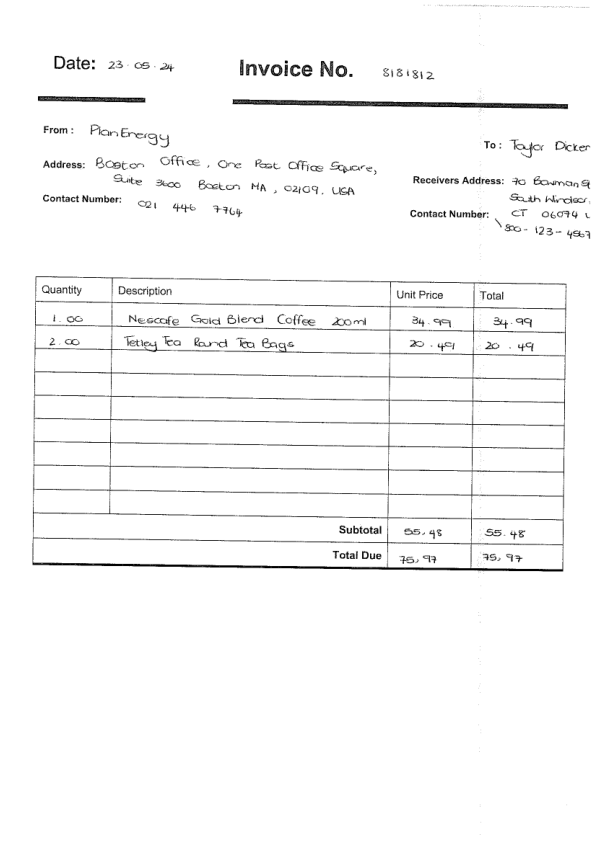 Date: 23-05-24
Invoice No. 8181812
From: PlanEnergy
Address: Boston Office, One Post Office Square,
Suite 3600 Boston MA, 02109, USA
Contact Number: 021 446 7764
To: Taylor Dicker
Receivers Address: 70 Bowman S
South Windsor,
CT 06074 U
Contact Number: 800-123-4567
Quantity Description Unit Price Total
1.00 Nescafe Gold Blend Coffee 200ml 34.99 34.99
2.00 Tetley Tea Round Tea Bags 20.49 20.49
Subtotal 55.48 55.48
Total Due 75.97 75.97